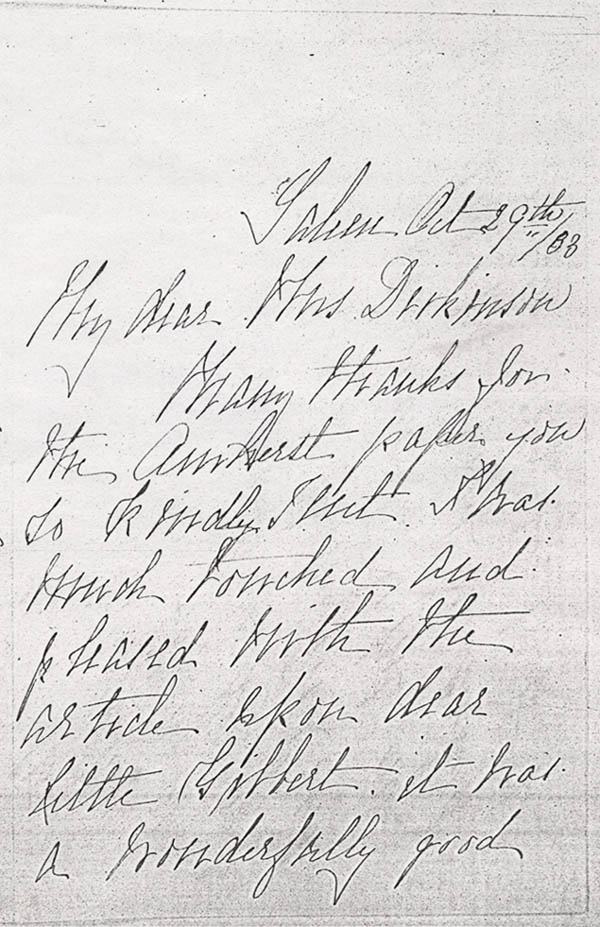 Salem Oct 29th/83
My dear Mrs Dickinson
Many thanks for
the Amherst paper you
so kindly sent. I was
much touched and
pleased with the
article upon dear
little Gilbert. it was
a wonderfully good